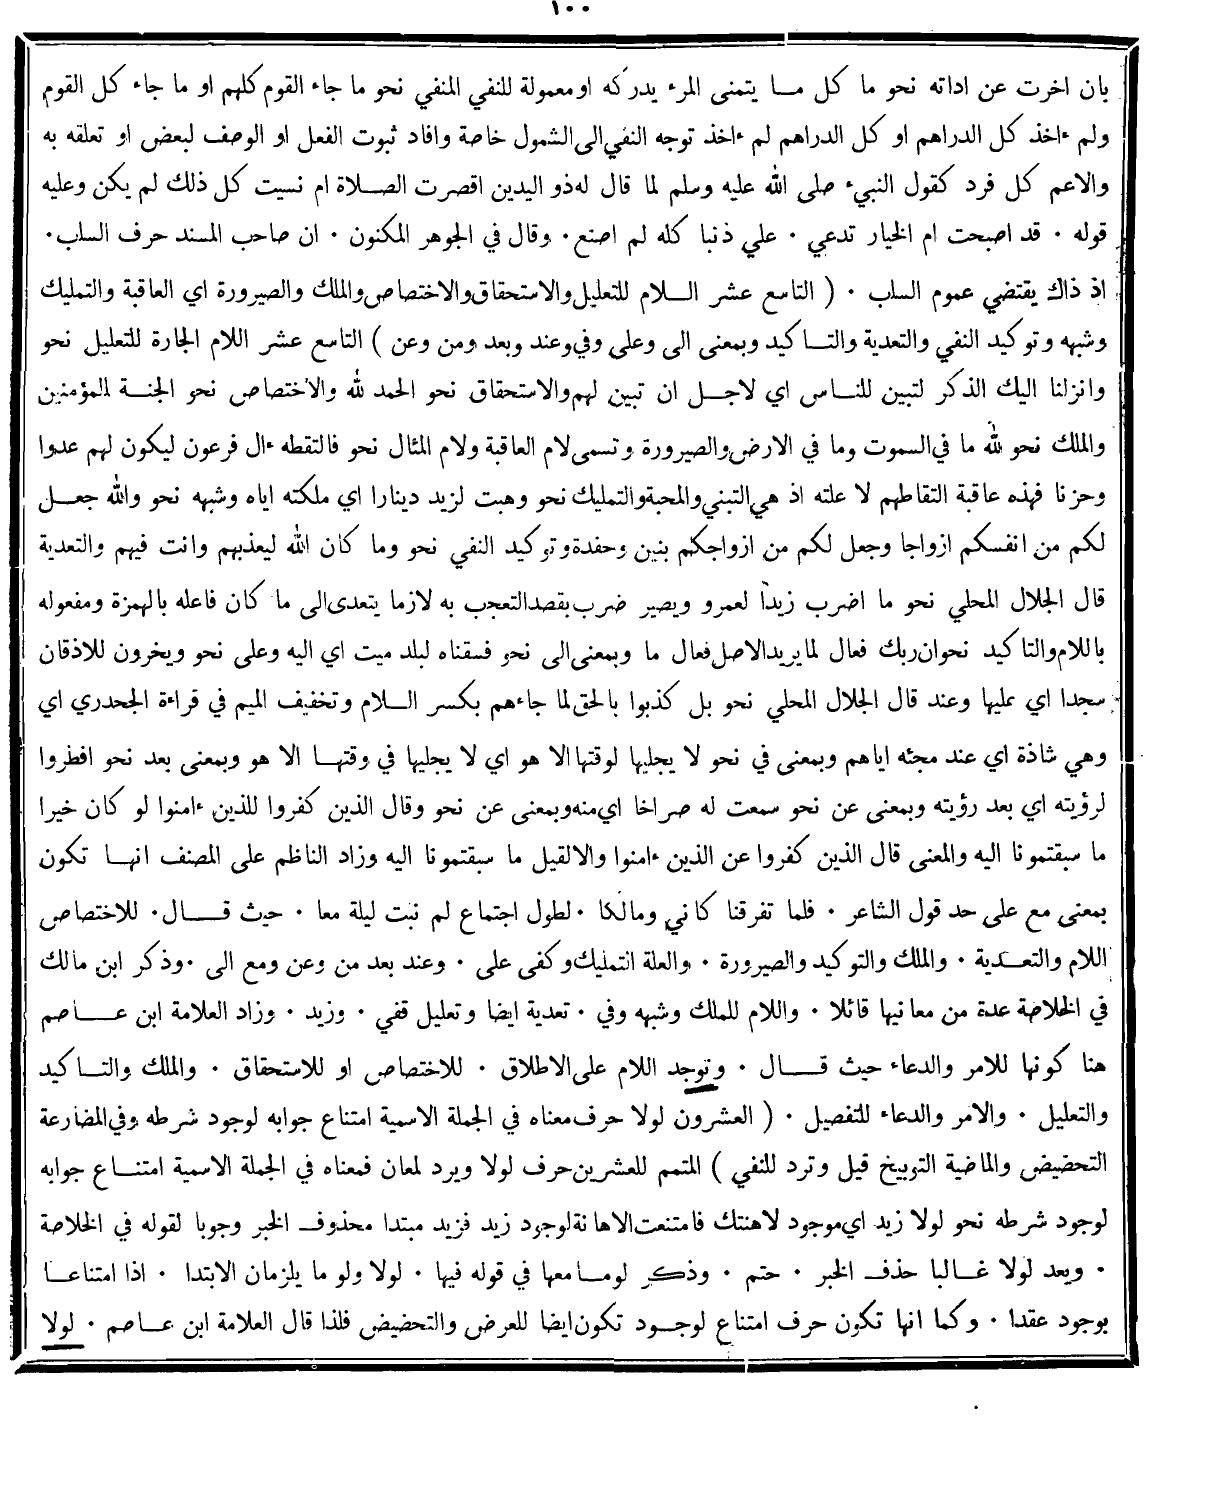 ١٠٠
بان اخرت عن اداته نحو ما كل مـــا يتمنى المرء يدركه او معمولة للنفي المنفي نحو ما جاء القوم كلهم او ما جاء كل القوم
ولم ءاخذ كل الدراهم او كل الدراهم لم ءاخذ توجه النفي الى الشمول خاصة وافاد ثبوت الفعل او الوصف لبعض او تعلقه به
والاعم كل فرد كقول النبيء صلى الله عليه وسلم لما قال له ذو اليدين اقصرت الصـلاة ام نسيت كل ذلك لم يكن وعليه
قوله ٠ قد اصبحت ام الخيار تدعي ٠ علي ذنبا كله لم اصنع٠ وقال في الجوهر المكنون ٠ ان صاحب المسند حرف السلب٠
اذ ذاك يقتضي عموم السلب ٠ ( التاسع عشر الـــلام للتعليل والاستحقاق والاختصاص والملك والصيرورة اي العاقبة والتمليك
وشبهه وتوكيد النفي والتعدية والتــاكيد وبمعنى الى وعلى وفي وعند وبعد ومن وعن ) التاسع عشر اللام الجارة للتعليل نحو
وانزلنا اليك الذكر لتبين للنــاس اي لاجــل ان تبين لهم والاستحقاق نحو الحمد لله والاختصاص نحو الجنـة للمؤمنين
والملك نحو لله ما في السموت وما في الارض والصيرورة وتسمى لام العاقبة ولام المئال نحو فالتقطه ءال فرعون ليكون لهم عدوا
وحزنا فهذه عاقبة التقاطهم لا علته اذ هي التبني والمحبة والتمليك نحو وهبت لزيد دينارا اي ملكته اياه وشبهه نحو والله جعــل
لكم من انفسكم ازواجا وجعل لكم من ازواجكم بنين وحفدة وتوكيد النفي نحو وما كان الله ليعذبهم وانت فيهم والتعدية
قال الجلال المحلي نحو ما اضرب زيدا لعمرو ويصير ضرب بقصد التعجب به لازما يتعدى الى ما كان فاعله بالهمزة ومفعوله
باللام والتاكيد نحو ان ربك فعال لما يريد الاصل فعال ما وبمعنى الى نحو فسقناه لبلد ميت اي اليه وعلى نحو ويخرون للاذقان
سجدا اي عليها وعند قال الجلال المحلي نحو بل كذبوا بالحق لما جاءهم بكسر الــلام وتخفيف الميم في قراءة الجحدري اي
وهي شاذة اي عند مجئه اياهم وبمعنى في نحو لا يجليها لوقتها الا هو اي لا يجليها في وقتهــا الا هو وبمعنى بعد نحو افطروا
لرؤيته اي بعد رؤيته وبمعنى عن نحو سمعت له صراخا اي منه وبمعنى عن نحو وقال الذين كفروا للذين ءامنوا لو كان خيرا
ما سبقتمونا اليه والمعنى قال الذين كفروا عن الذين ءامنوا والا لقيل ما سبقتمونا اليه وزاد الناظم على المصنف انهــا تكون
بمعنى مع على حد قول الشاعر ٠ فلما تفرقنا كاني ومالكا ٠ لطول اجتماع لم نبت ليلة معا ٠ حيث قـــال٠ للاختصاص
اللام والتعـدية ٠ والملك والتوكيد والصيرورة ٠ والعلة التمليك وكفى على ٠ وعند بعد من وعن ومع الى ٠ وذكر ابن مالك
في الخلاصة عدة من معانيها قائلا ٠ واللام للملك وشبهه وفي ٠ تعدية ايضا وتعليل قفي ٠ وزيد ٠ وزاد العلامة ابن عــاصم
هنا كونها للامر والدعاء حيث قـــال ٠ وتوجد اللام على الاطلاق ٠ للاختصاص او للاستحقاق ٠ والملك والتــاكيد
والتعليل ٠ والامر والدعاء للتفصيل ٠ ( العشرون لولا حرف معناه في الجملة الاسمية امتناع جوابه لوجود شرطه وفي المضارعة
التحضيض والماضية التوبيخ قيل وترد للنفي ) المتمم للعشرين حرف لولا ويرد لمعان فمعناه في الجملة الاسمية امتنــاع جوابه
لوجود شرطه نحو لولا زيد اي موجود لاهنتك فامتنعت الاهانة لوجود زيد فزيد مبتدا محذوف الخبر وجوبا لقوله في الخلاصة
٠ وبعد لولا غــالبا حذف الخبر ٠ حتم ٠ وذكر لومــا معها في قوله فيها ٠ لولا ولو ما يلزمان الابتدا ٠ اذا امتناعــا
بوجود عقدا ٠ وكما انها تكون حرف امتناع لوجــود تكون ايضا للعرض والتحضيض فلذا قال العلامة ابن عــاصم ٠ لولا